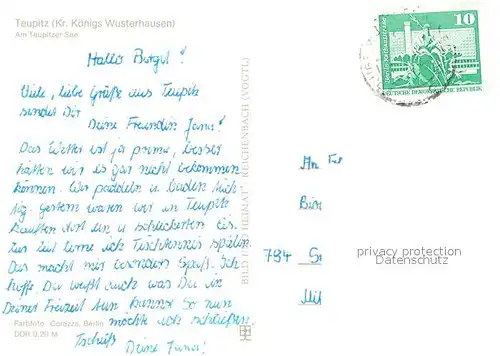 Teupitz (Kr. Königs Wusterhausen)
Am Teupitzer See
Hallo Birgit!
Viele, liebe Grüße aus Teupitz
sendet Dir
Deine Freundin Jana!
Das Wetter ist ja prima, besser
hätten wir es gar nicht bekommen
können. Wir paddeln u. baden tüch-
tig. Gestern waren wir in Teupitz
kauften dort ein u. schleckerten Eis.
Zur Zeit lerne ich Tischtennis spielen.
Das macht mir besonders Spaß. Ich
hoffe Du weißt auch was Du in
Deiner Freizeit tun kannst. So nun
möchte ich schließen.
Tschüß
Deine Jana!
Farbfoto Corazza, Berlin
DDR 0,20 M
BILD HEIMAT REICHENBACH (VOGTL)
10
DEUTSCHE DEMOKRATISCHE REPUBLIK
An
794
privacy protection
Datenschutz